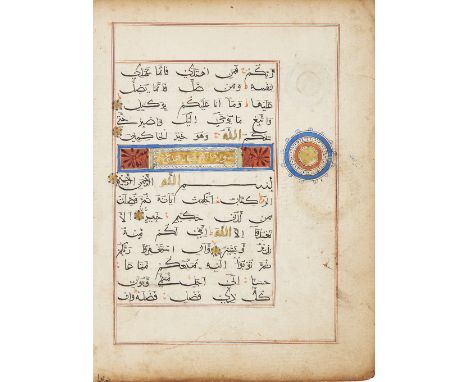 ربكم فمن اهتدى فانما يهتدي
لنفسه ومن ضل فانما يضل
عليها وما انا عليكم بوكيل
واتبع ما يوحى اليك واصبر حتى
يحكم الله وهو خير الحاكمين
بسم الله الرحمن الرحيم
الر كتاب احكمت اياته ثم فصلت
من لدن حكيم خبير الا
تعبدوا الا الله انني لكم منه
نذير وبشير وان استغفروا ربكم
ثم توبوا اليه يمتعكم متاعا
حسنا الى اجل مسمى ويؤت
كل ذي فضل فضله وان